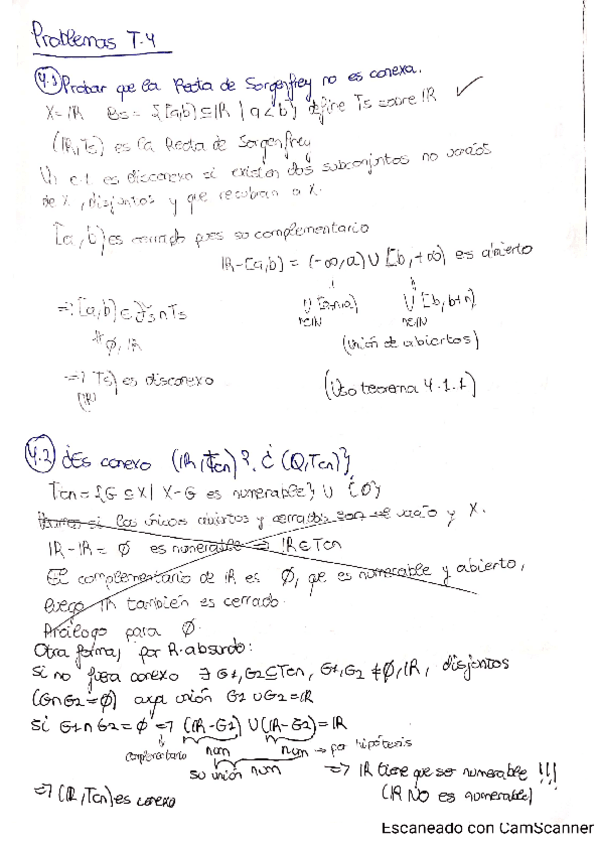 Problemas T.4
4.1 Probar que la Recta de Sorgenfrey no es conexa.
X=ℝ Bs = {[a,b) ⊆ ℝ | a<b} define Ts sobre ℝ ✓
(ℝ,Ts) es la Recta de Sorgenfrey
Un e.t. es disconexo si existen dos subconjuntos no vacíos
de X, disjuntos y que recubran a X.
[a,b) es cerrado pues su complementario
ℝ-[a,b) = (-∞,a) ∪ [b,+∞) es abierto
⇒ [a,b) ∈ ∩ Ts
≠ ∅, ℝ
∪ [a-n,a) ∪ [b,b+n)
n∈ℕ n∈ℕ
(Unión de abiertos)
⇒ (ℝ,Ts) es disconexo (Uso teorema 4.1.1)
4.2 ¿Es conexo (ℝ,Tcn)?, ¿(Q,Tcn)?
Tcn = {G ⊆ X | X-G es numerable} ∪ {∅}
si los únicos abiertos y cerrados son el vacío y X.
ℝ-ℝ = ∅ es numerable ⇒ ℝ∈Tcn
El complementario de ℝ es ∅, que es numerable y abierto,
luego ℝ también es cerrado.
Análogo para ∅.
Otra forma, por R. absurdo:
Si no fuera conexo ∃ G1,G2⊆Tcn, G1,G2 ≠∅,ℝ, disjuntos
(G1∩G2=∅) cuya unión G1∪G2=ℝ
Si G1∩G2=∅ ⇒ (ℝ-G1) ∪ (ℝ-G2)=ℝ
complementario num num → por hipótesis
su unión num ⇒ ℝ tiene que ser numerable !!!
⇒ (ℝ,Tcn) es conexo (ℝ NO es numerable)
Escaneado con CamScanner